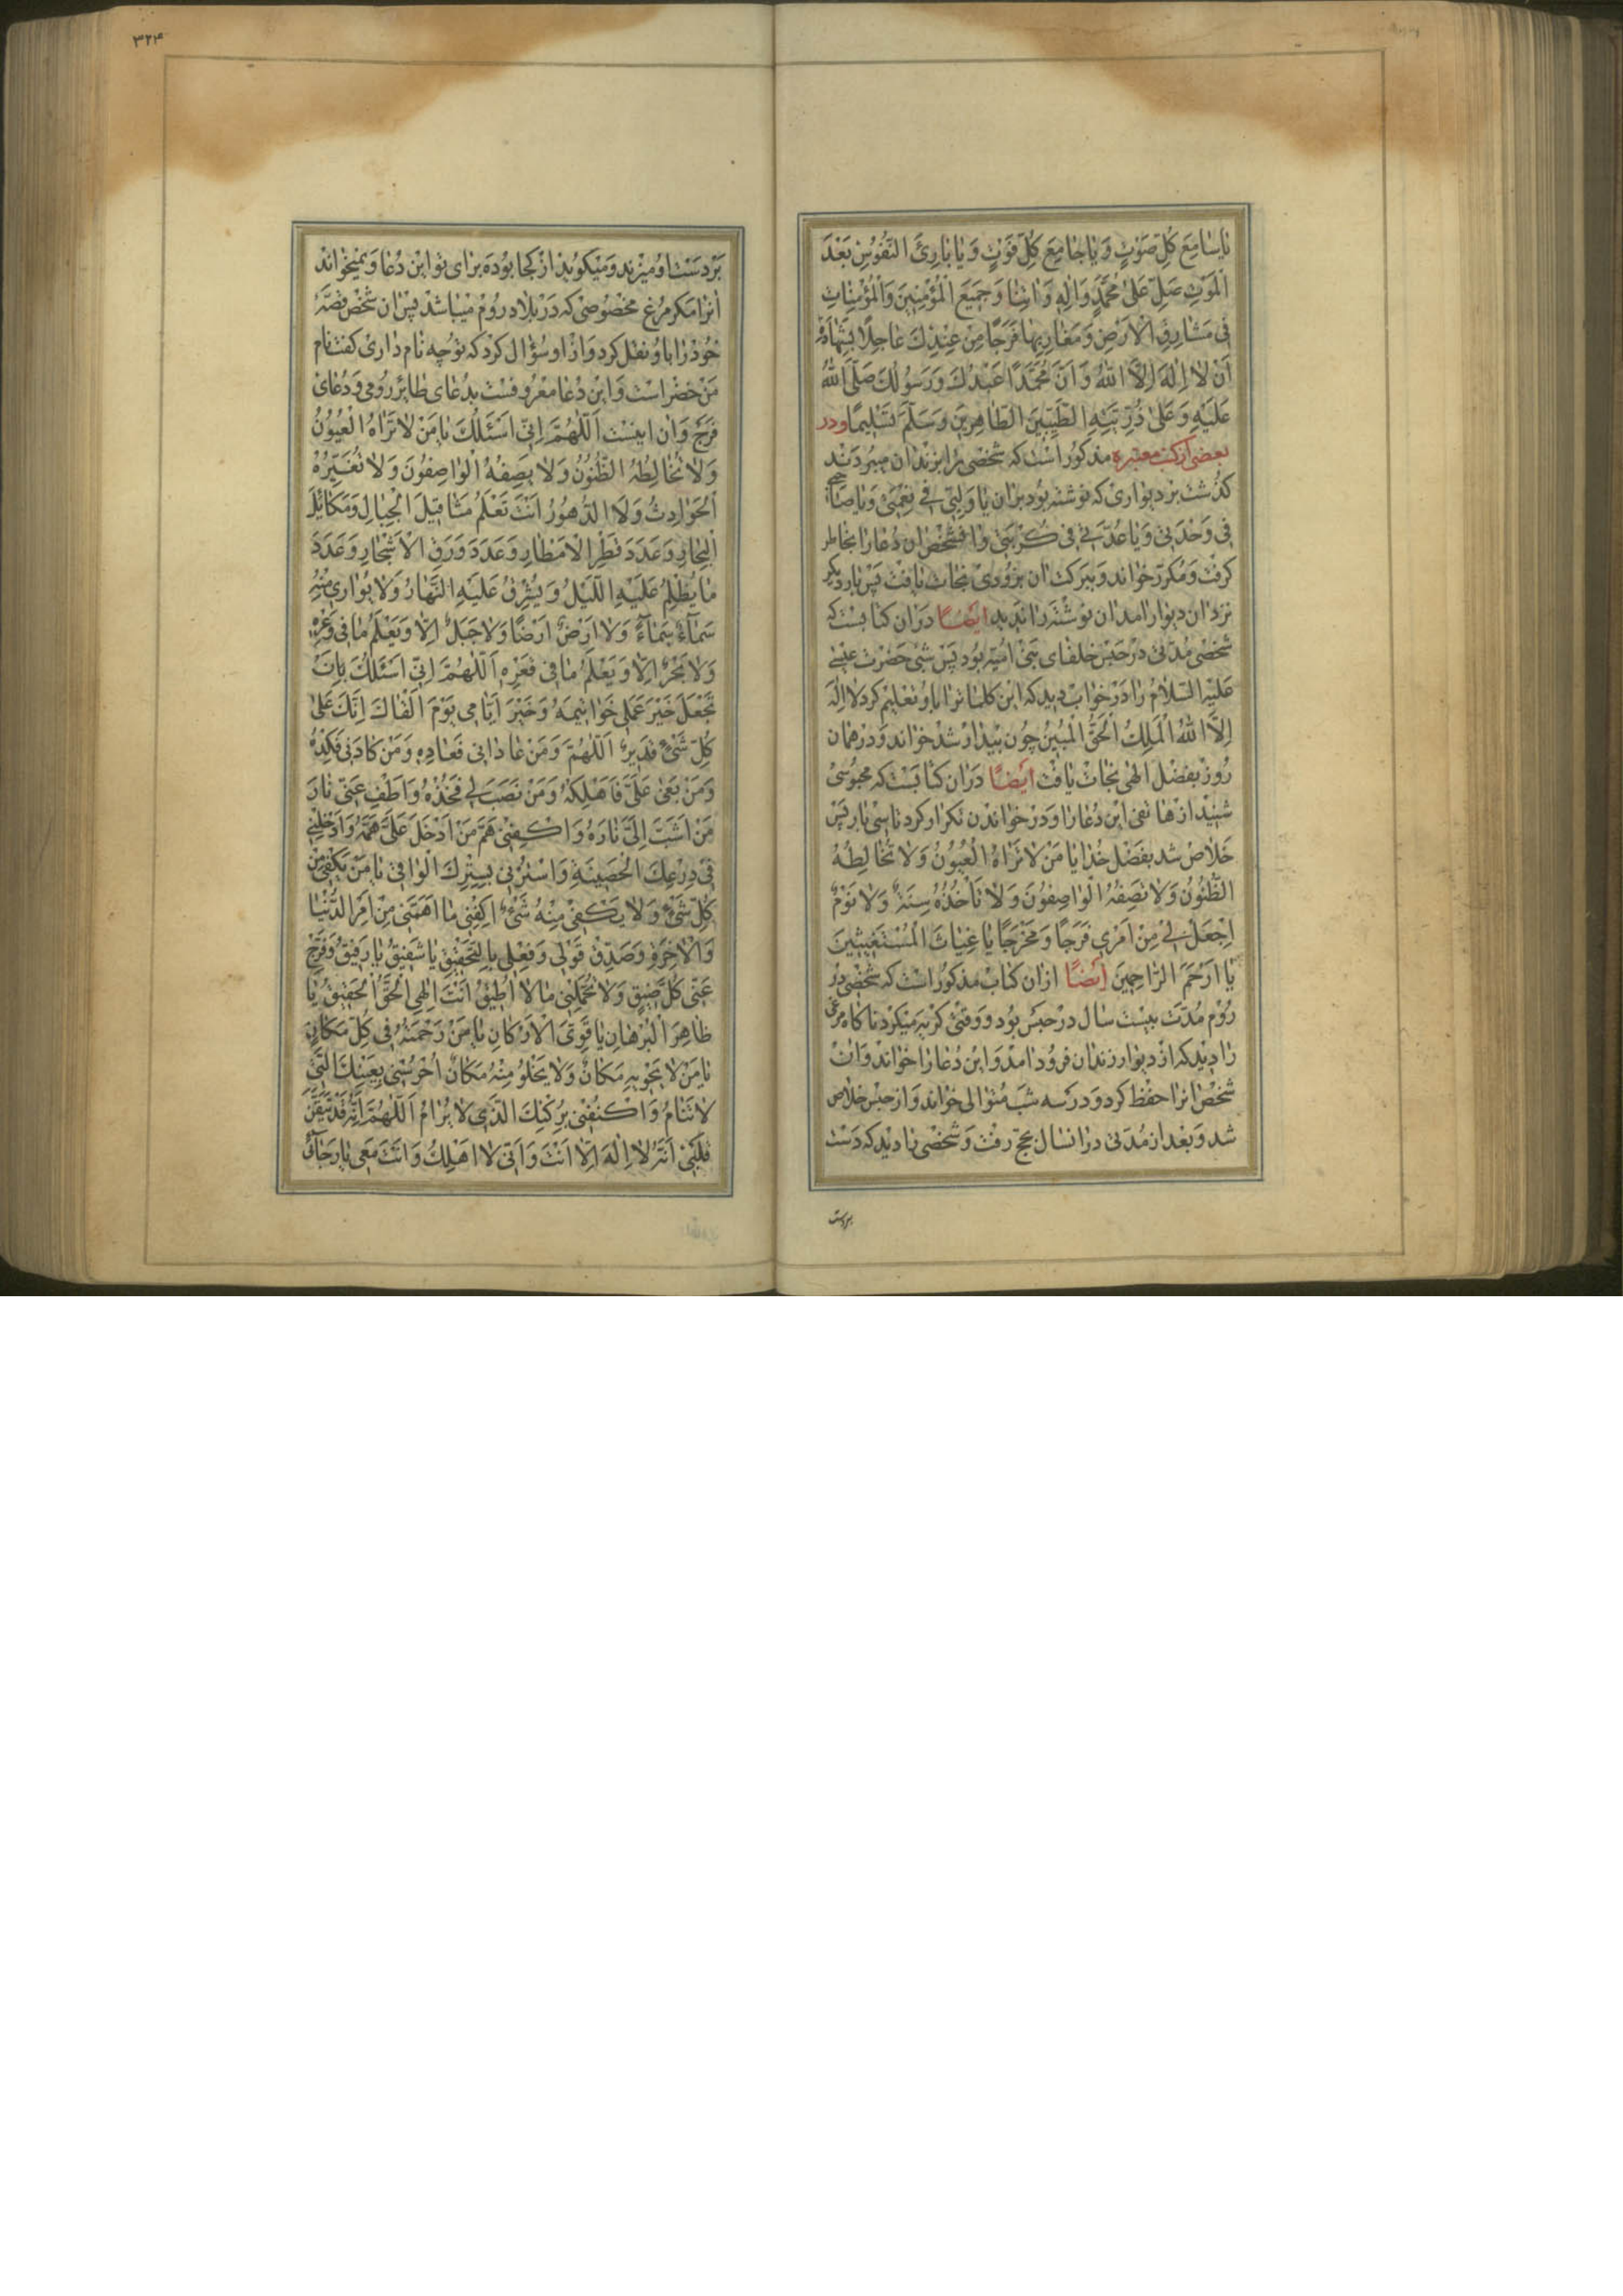 یا سامِعَ کُلِّ صَوْتٍ وَ یا جامِعَ کُلِّ فَوْتٍ وَ یا بارِئَ النُّفُوسِ بَعْدَ
الْمَوْتِ صَلِّ عَلیٰ مُحَمَّدٍ وَ الِهِ وَ اٰتِنا وَ جَمیعَ الْمُؤْمِنینَ وَالْمُؤْمِناتِ
فی مَشارِقِ الْاَرْضِ وَ مَغارِبِها فَرَجًا مِنْ عِنْدِكَ عاجِلًا بِشَهادَةِ
اَنْ لا اِلٰهَ اِلَّا اللّٰهُ وَ اَنَّ مُحَمَّدًا عَبْدُكَ وَ رَسُولُكَ صَلَّی اللّٰهُ
عَلَیْهِ وَ عَلیٰ ذُرِّیَّتِهِ الطَّیِّبینَ الطّاهِرینَ وَ سَلَّمَ تَسْلیمًا و در
بعضی از کتب معتبره مذکور است که شخصی را بزندان میبردند
کذشت بر دیواری که نوشته بود بران یا وَلِیّی فی نِعْمَتی وَ یا صاحِبی
فی وَحْدَتی وَ یا عُدَّتی فی کُرْبَتی و آنشخص ان دعا را بخاطر
کرفت و مکرّر خواند و ببرکت ان بزودی نجات یافت پس بار دیکر
نزد ان دیوار امد ان نوشته را ندید ایضًا در ان کتابست که
شخصی مدّتی در حبس خلفای بنی امیّه بود پس شبی حضرت عیسی
علیه السّلام را در خواب دید که این کلمات را باو تعلیم کرد لا اِلٰهَ
اِلَّا اللّٰهُ الْمَلِكُ الْحَقُّ الْمُبینُ چون بیدار شد خواند و در همان
روز بفضل الهی نجات یافت ایضًا در ان کتابست که محبوسی
شنید از هاتفی این دعا را و در خواندن تکرار کرد تا سی بار پس
خلاص شد بفضل خدا یا مَنْ لا تَراهُ الْعُیُونُ وَ لا تُخالِطُهُ
الظُّنُونُ وَ لا تَصِفُهُ الْواصِفُونَ وَ لا تَأْخُذُهُ سِنَةٌ وَ لا نَوْمٌ
اِجْعَلْ لی مِنْ اَمْری فَرَجًا وَ مَخْرَجًا یا غِیاثَ الْمُسْتَغیثینَ
یا اَرْحَمَ الرّاحِمینَ ایضًا از ان کتاب مذکور است که شخصی در
روم مدّت بیست سال در حبس بود و وقتی کریه میکرد ناکاه مرغی
را دید که از دیوار زندان فرود امد و این دعا را خواند و ان
شخص انرا حفظ کرد و در سه شب متوالی خواند و از حبس خلاص
شد و بعد از مدّتی در انسال بحج رفت و شخصی را دید که دست
بر دست
۳۲۴
بر دست او میزند و میکوید از کجا بوده برای تو این دعا و نمیخواند
انرا مکر مرغ مخصوصی که در بلاد روم میباشد پس ان شخص قصّه
خود را باو نقل کرد و از او سؤال کرد که تو چه نام داری کفت نام
من خضر است و این دعا معروفست بدعای طائر رومی و دعای
فرج و ان اینست اَللّٰهُمَّ اِنّی اَسْئَلُكَ یا مَنْ لا تَراهُ الْعُیُونُ
وَ لا تُخالِطُهُ الظُّنُونُ وَ لا یَصِفُهُ الْواصِفُونَ وَ لا تُغَیِّرُهُ
الْحَوادِثُ وَ لَا الدُّهُورُ اَنْتَ تَعْلَمُ مَثاقیلَ الْجِبالِ وَ مَکائیلَ
الْبِحارِ وَ عَدَدَ قَطْرِ الْاَمْطارِ وَ عَدَدَ وَرَقِ الْاَشْجارِ وَ عَدَدَ
ما یُظْلِمُ عَلَیْهِ اللَّیْلُ وَ یُشْرِقُ عَلَیْهِ النَّهارُ وَ لا یُواری مِنْهُ
سَماءٌ سَماءً وَ لا اَرْضٌ اَرْضًا وَ لا جَبَلٌ اِلّا وَ یَعْلَمُ ما فی وَعْرِهِ
وَ لا بَحْرٌ اِلّا وَ یَعْلَمُ ما فی قَعْرِهِ اَللّٰهُمَّ اِنّی اَسْئَلُكَ بِاَنْ
تَجْعَلَ خَیْرَ عَمَلی خَواتیمَهُ وَ خَیْرَ اَیّامی یَوْمَ اَلْقاكَ اِنَّكَ عَلیٰ
کُلِّ شَیْءٍ قَدیرٌ اَللّٰهُمَّ وَ مَنْ عادانی فَعادِهِ وَ مَنْ کادَنی فَکِدْهُ
وَ مَنْ بَغیٰ عَلَیَّ فَاَهْلِکْهُ وَ مَنْ نَصَبَ لی فَخُذْهُ وَ اَطْفِ عَنّی نارَ
مَنْ اَشَبَّ اِلَیَّ نارَهُ وَ اکْفِنی هَمَّ مَنْ اَدْخَلَ عَلَیَّ هَمَّهُ وَ اَدْخِلْنی
فی دِرْعِكَ الْحَصینَةِ وَ اسْتُرْنی بِسِتْرِكَ الْواقی یا مَنْ یَکْفی مِنْ
کُلِّ شَیْءٍ وَ لا یَکْفی مِنْهُ شَیْءٌ اکْفِنی ما اَهَمَّنی مِنْ اَمْرِ الدُّنْیا
وَ الْاٰخِرَةِ وَ صَدِّقْ قَوْلی وَ فِعْلی بِالتَّحْقیقِ یا شَفیقُ یا رَفیقُ وَ فَرِّجْ
عَنّی کُلَّ ضیقٍ وَ لا تُحَمِّلْنی ما لا اُطیقُ اَنْتَ اِلٰهِی الْحَقُّ الْحَقیقُ یا
ظاهِرَ الْبُرْهانِ یا قَوِیَّ الْاَرْکانِ یا مَنْ رَحْمَتُهُ فی کُلِّ مَکانٍ
یا مَنْ لا یَحْویهِ مَکانٌ وَ لا یَخْلُو مِنْهُ مَکانٌ اُحْرُسْنی بِعَیْنِكَ الَّتی
لا تَنامُ وَ اکْنُفْنی بِرُکْنِكَ الَّذی لا یُرامُ اَللّٰهُمَّ اِنَّهُ قَدْ تَیَقَّنَ
قَلْبی اَنَّهُ لا اِلٰهَ اِلّا اَنْتَ وَ اَنّی لا اَهْلِكُ وَ اَنْتَ مَعی یا رَجائی